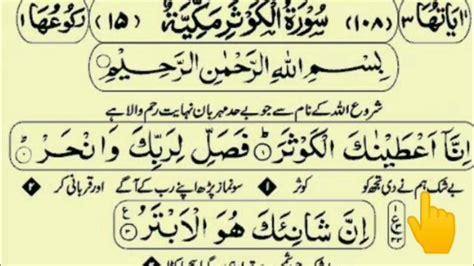 اٰیَاتُهَا ٣ (١٠٨) سُوْرَةُ الْكَوْثَرِ مَكِّيَّةٌ (١٥) رُكُوْعُهَا ١
بِسْمِ اللهِ الرَّحْمٰنِ الرَّحِيْمِ
شروع اللہ کے نام سے جو بے حد مہربان نہایت رحم والا ہے
اِنَّاۤ اَعْطَيْنٰكَ الْكَوْثَرَ ١ فَصَلِّ لِرَبِّكَ وَانْحَرْ ٢
بے شک ہم نے دی تجھ کو کوثر ١ سو نماز پڑھ اپنے رب کے آگے اور قربانی کر ٢
اِنَّ شَانِئَكَ هُوَ الْاَبْتَرُ ٣